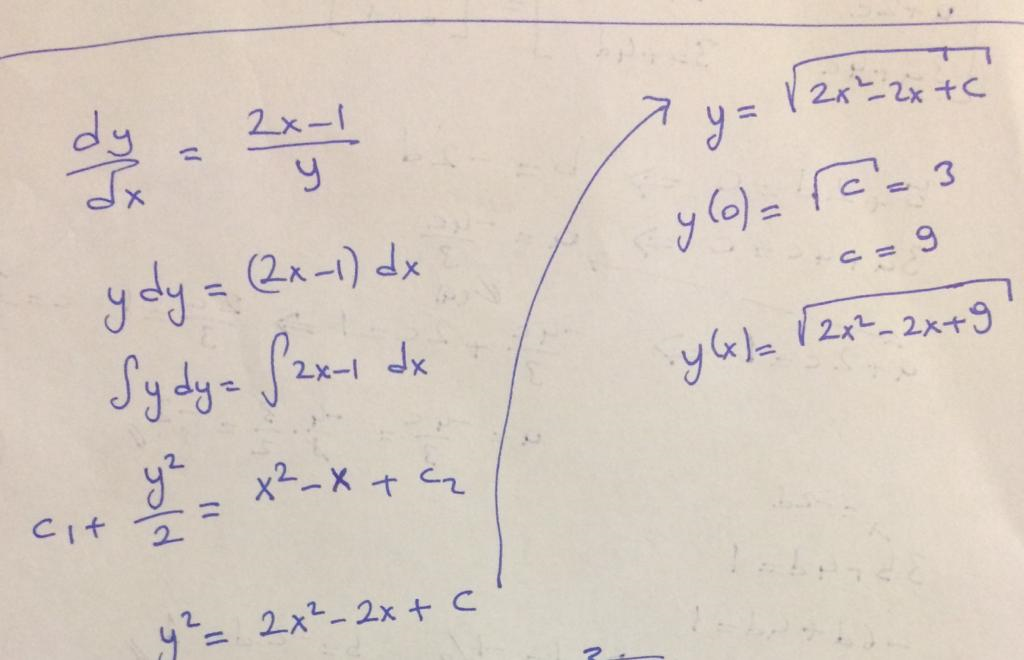 dy/dx = (2x-1)/y
y dy = (2x-1) dx
∫y dy = ∫2x-1 dx
c₁ + y²/2 = x²-x + c₂
y² = 2x²-2x + c
y = √(2x²-2x+c)
y(0) = √c = 3
c = 9
y(x) = √(2x²-2x+9)